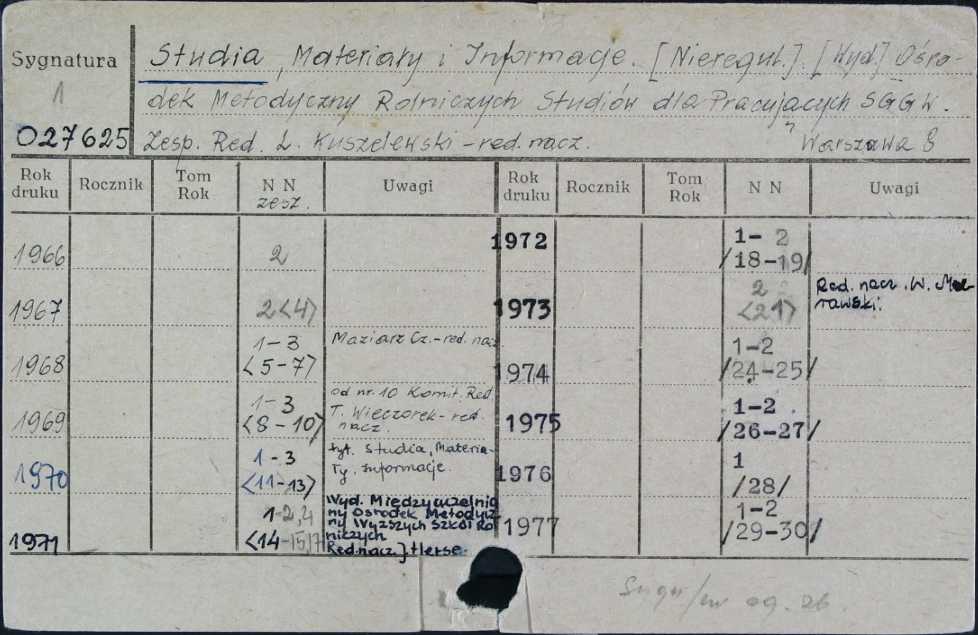 Sygnatura
1
027625
Studia, Materiały i Informacje. [Nieregul.]. [Wyd.] Ośro-
dek Metodyczny Rolniczych Studiów dla Pracujących SGGW.
Zesp. Red. L. Kuszelewski - red. nacz. Warszawa 8
Rok druku Rocznik Tom Rok NN zesz. Uwagi Rok druku Rocznik Tom Rok NN Uwagi
1966 2
1967 2<4>
1968 1-3 <5-7> Maziarz Cz.-red. nacz.
1969 1-3 <8-10> od nr. 10 Komit. Red.
T. Wieczorek-red.
nacz.
1970 1-3 <11-13> tyt. Studia, Materia-
ły, Informacje.
1971 1-2,4 <14-15,17> Wyd. Międzyuczelnia
ny Ośrodek Metodycz
ny Wyższych Szkół Ro
lniczych
Red nacz. J. Herse.
1972 1-2 /18-19/
1973 2 <21> Red. nacz. W. Mo-
rawski.
1974 1-2 /24-25/
1975 1-2 /26-27/
1976 1 /28/
1977 1-2 /29-30/